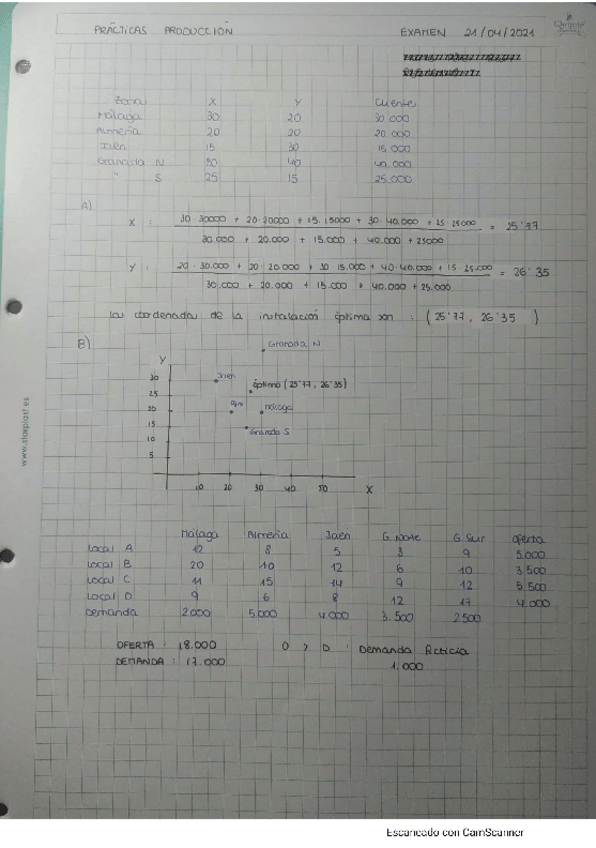 PRÁCTICAS PRODUCCIÓN EXAMEN 21/04/2021
Zona X Y Cliente
Málaga 30 20 30 000
Almería 20 20 20.000
Jaén 15 30 15 000
Granada N 30 40 40.000
" S 25 15 25.000
A)
X : 30·30000 + 20·20000 + 15·15000 + 30·40.000 + 25·25000 = 25'77
30.000 + 20.000 + 15.000 + 40.000 + 25000
Y : 20·30.000 + 20·20.000 + 30·15.000 + 40·40.000 + 15·25.000 = 26'35
30.000 + 20.000 + 15.000 + 40.000 + 25.000
las coordenadas de la instalación óptima son : (25'77, 26'35)
B)
Granada N
Y
Jaén
30
óptimo (25'77, 26'35)
25
20 Málaga
15 Granada S
10
5
10 20 30 40 50 X
www.starplast.es
Málaga Almería Jaén G. Norte G. Sur oferta
Local A 12 8 5 3 9 5.000
Local B 20 10 12 6 10 3.500
Local C 11 15 14 9 12 5.500
Local D 9 6 8 12 17 4.000
Demanda 2.000 5.000 4.000 3.500 2.500
OFERTA : 18.000 O > D : Demanda ficticia
DEMANDA : 17.000 1.000
Escaneado con CamScanner